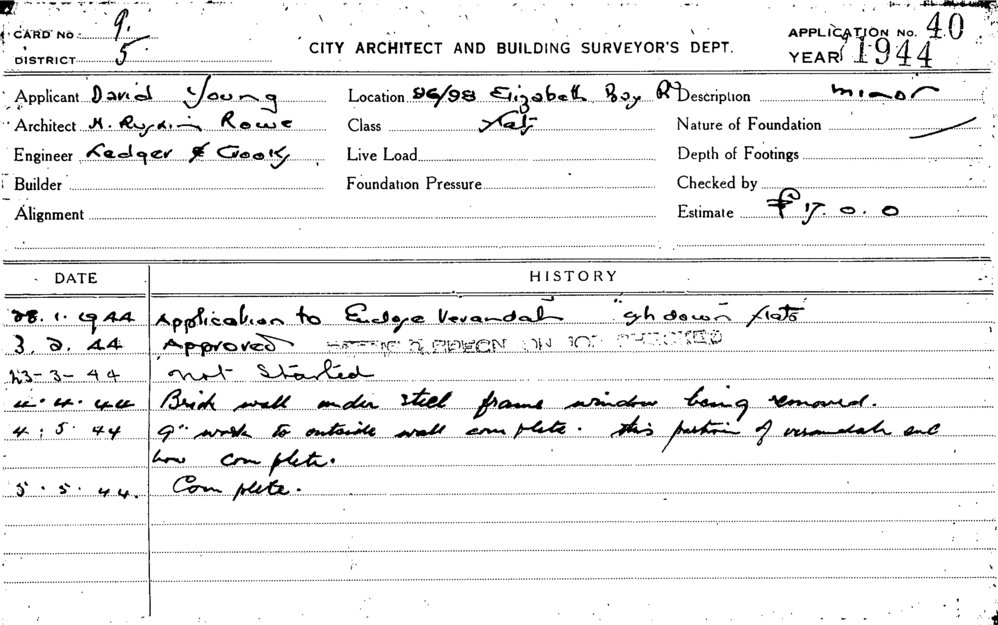 CARD No. 9.
DISTRICT 5
CITY ARCHITECT AND BUILDING SURVEYOR'S DEPT.
APPLICATION No. 40
YEAR 1944
Applicant David Young
Location 96/98 Elizabeth Bay Rd
Description minor
Architect H. Ruskin Rowe
Class Flats
Nature of Foundation
Engineer Ledger &
Live Load
Depth of Footings
Builder
Foundation Pressure
Checked by
Alignment
Estimate £17. 0. 0
DATE HISTORY
28. 1. 1944 Application to Verandah down Flats
3. 2. 44 Approved
23-3-44 not Started
4. 4. 44 Brick wall under steel frame window being removed.
4. 5. 44 9" work to outside wall complete. this portion of verandah
now complete.
5. 5. 44. Complete.